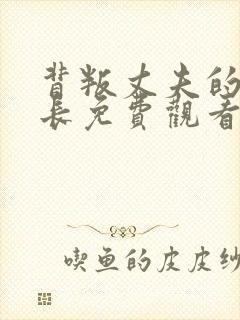 背叛丈夫的
長免費觀看
喫鱼的皮皮纱